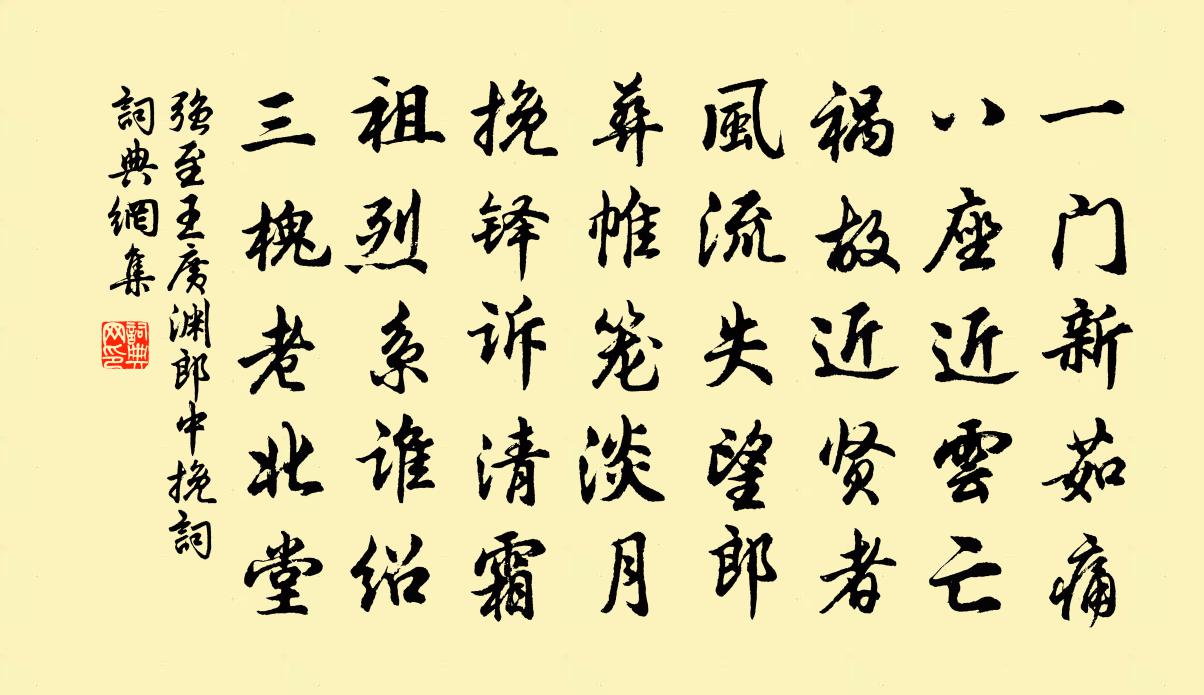 一门新茹痛
八座近雲亡
祸故近贤者
風流失望郎
葬帷笼淡月
挽铎诉清霜
祖烈系谁绍
三槐老北堂
强至王廣渊郎中挽詞
詞典網集
詞典网印